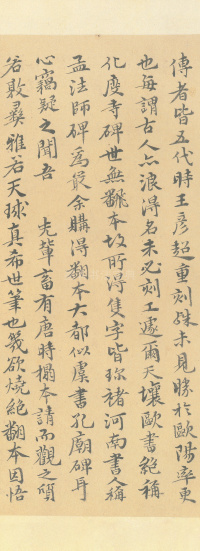 傳者皆五代時王彦超重刻殊未見勝於歐陽率更
也每謂古人亦浪得名未必刻工遽爾天壤歐書絕稱
化度寺碑世無翻本故所得隻字皆珎褚河南書人稱
孟法師碑為最余購得翻本大都似虞書孔廟碑耳
心竊疑之聞吾 先輩畜有唐時搨本請而觀之質
若敦彞雅若天球真希世筆也幾欲燒絕翻本因悟